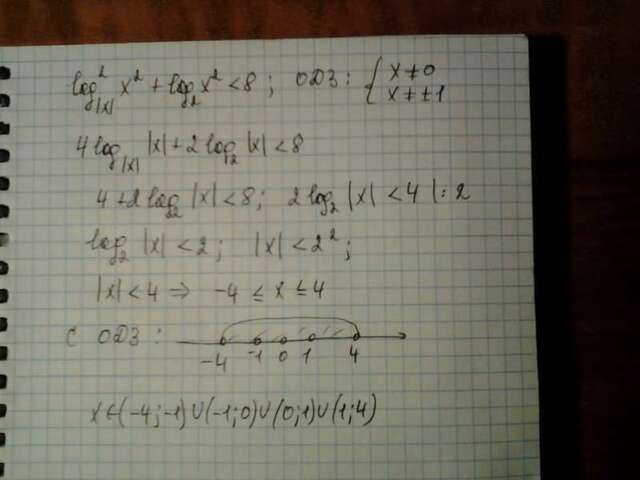 log²_|x| x² + log₂ x² < 8 ; ОДЗ : { x ≠ 0
x ≠ ±1
4 log_|x| |x| + 2 log₂ |x| < 8
4 + 2 log₂ |x| < 8 ; 2 log₂ |x| < 4 | : 2
log₂ |x| < 2 ; |x| < 2² ;
|x| < 4 ⇒ -4 ≤ x ≤ 4
С ОДЗ :
-4 -1 0 1 4
x ∈ (-4 ; -1) ∪ (-1 ; 0) ∪ (0 ; 1) ∪ (1 ; 4)